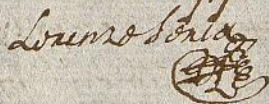 Lorenzo Soria